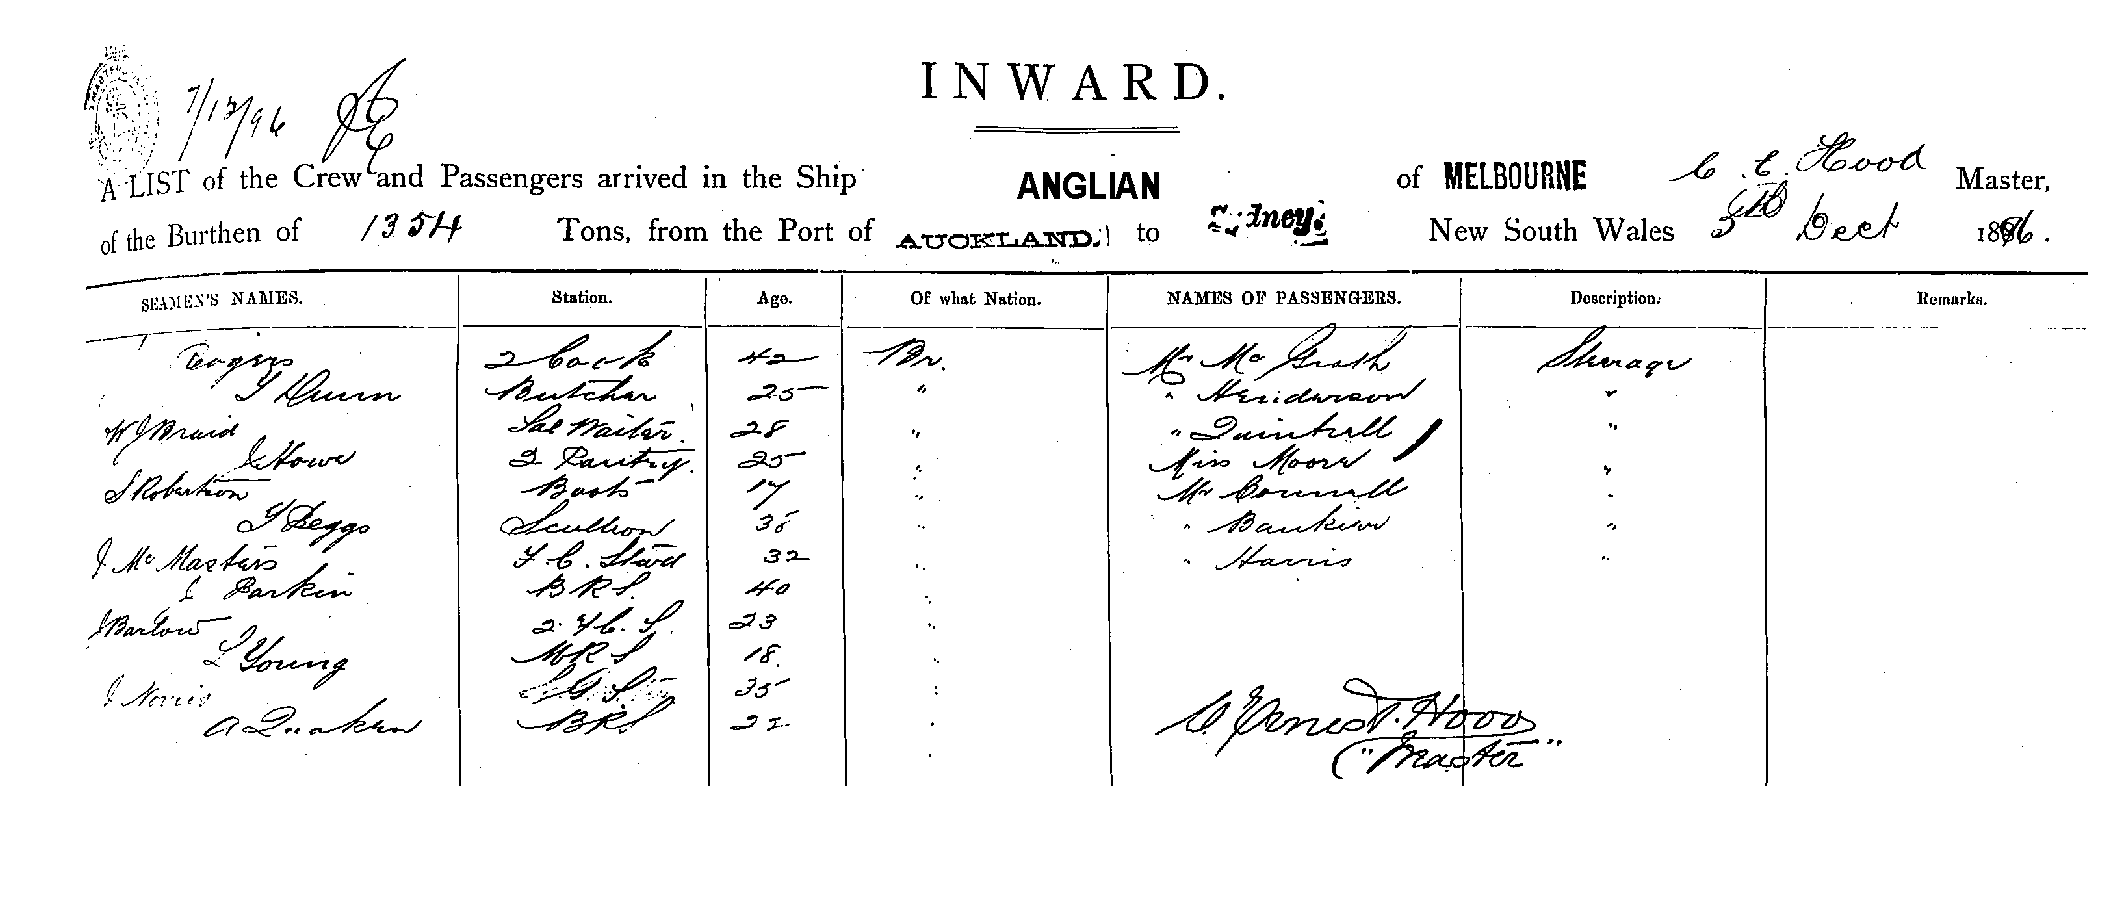 INWARD.
7/12/96
A LIST of the Crew and Passengers arrived in the Ship ANGLIAN of MELBOURNE C. E. Hood Master,
of the Burthen of 1354 Tons, from the Port of AUCKLAND. to Sydney. New South Wales 5th Dect 1896.
SEAMEN'S NAMES. Station. Age. Of what Nation. NAMES OF PASSENGERS. Description. Remarks.
Rogers 2 Cook 42 Br. Mr McGrath Steerage
T Dunn Butcher 25 " " Henderson "
W J Braid Sal Waiter. 28 " " Quintrell "
J Howe 2 Pantry. 25 " Miss Moore "
S Robertson Boots 17 " Mr Connell "
T Beggs Scullion 38 " " Bankier "
J McMasters F. C. Stwd 32 " " Harris "
J Parkin B R S. 40 "
J Barlow 2. F C. S. 23 "
L Young M R S 18. "
J Norris S G S. 35 "
A B R S 22. "
C. Ernest. Hood
("Master"